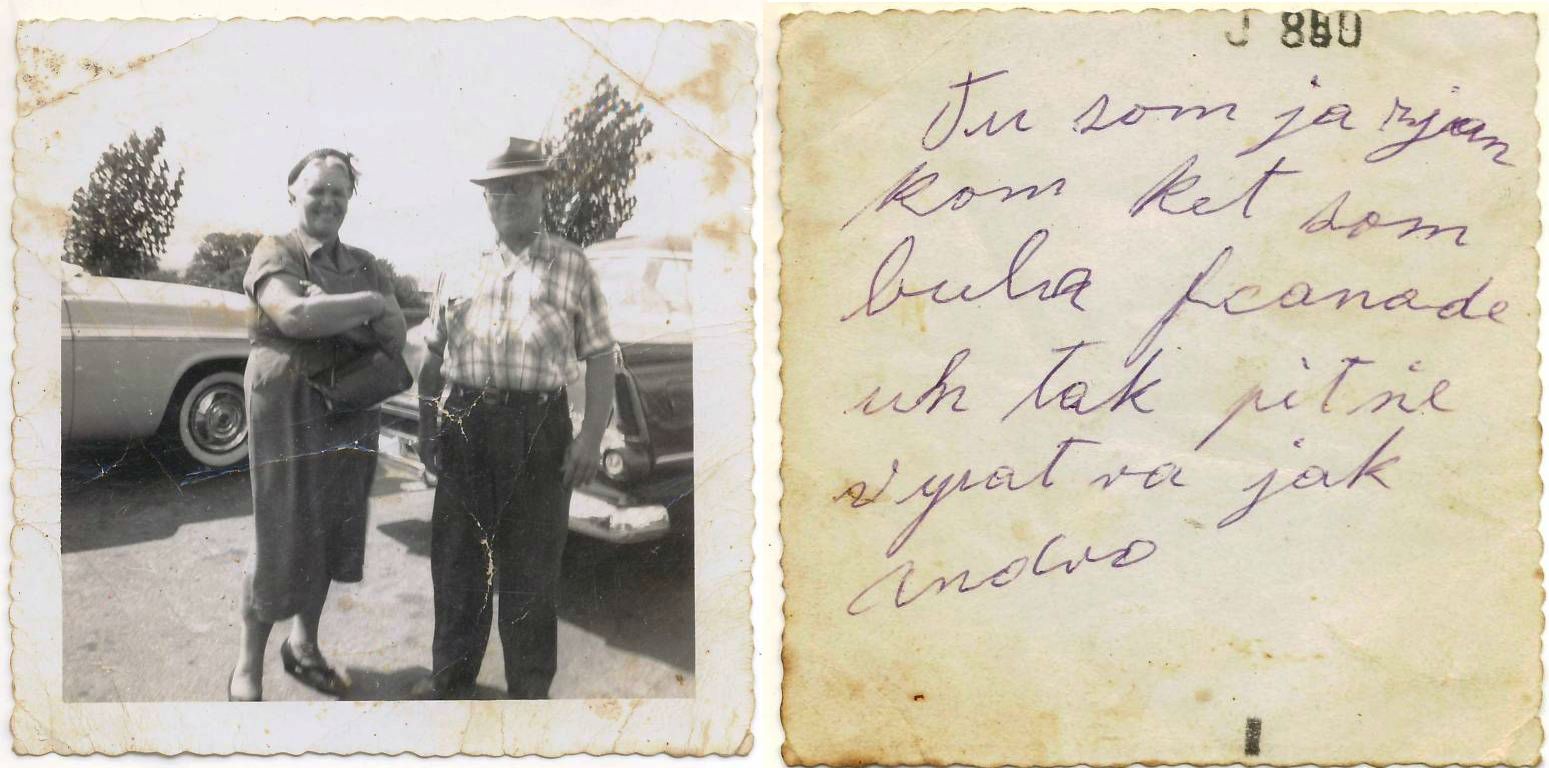 J 880
Tu som ja zjan
kom ket som
bula fcanade
uh tak pitne
vyzat va jak
andro